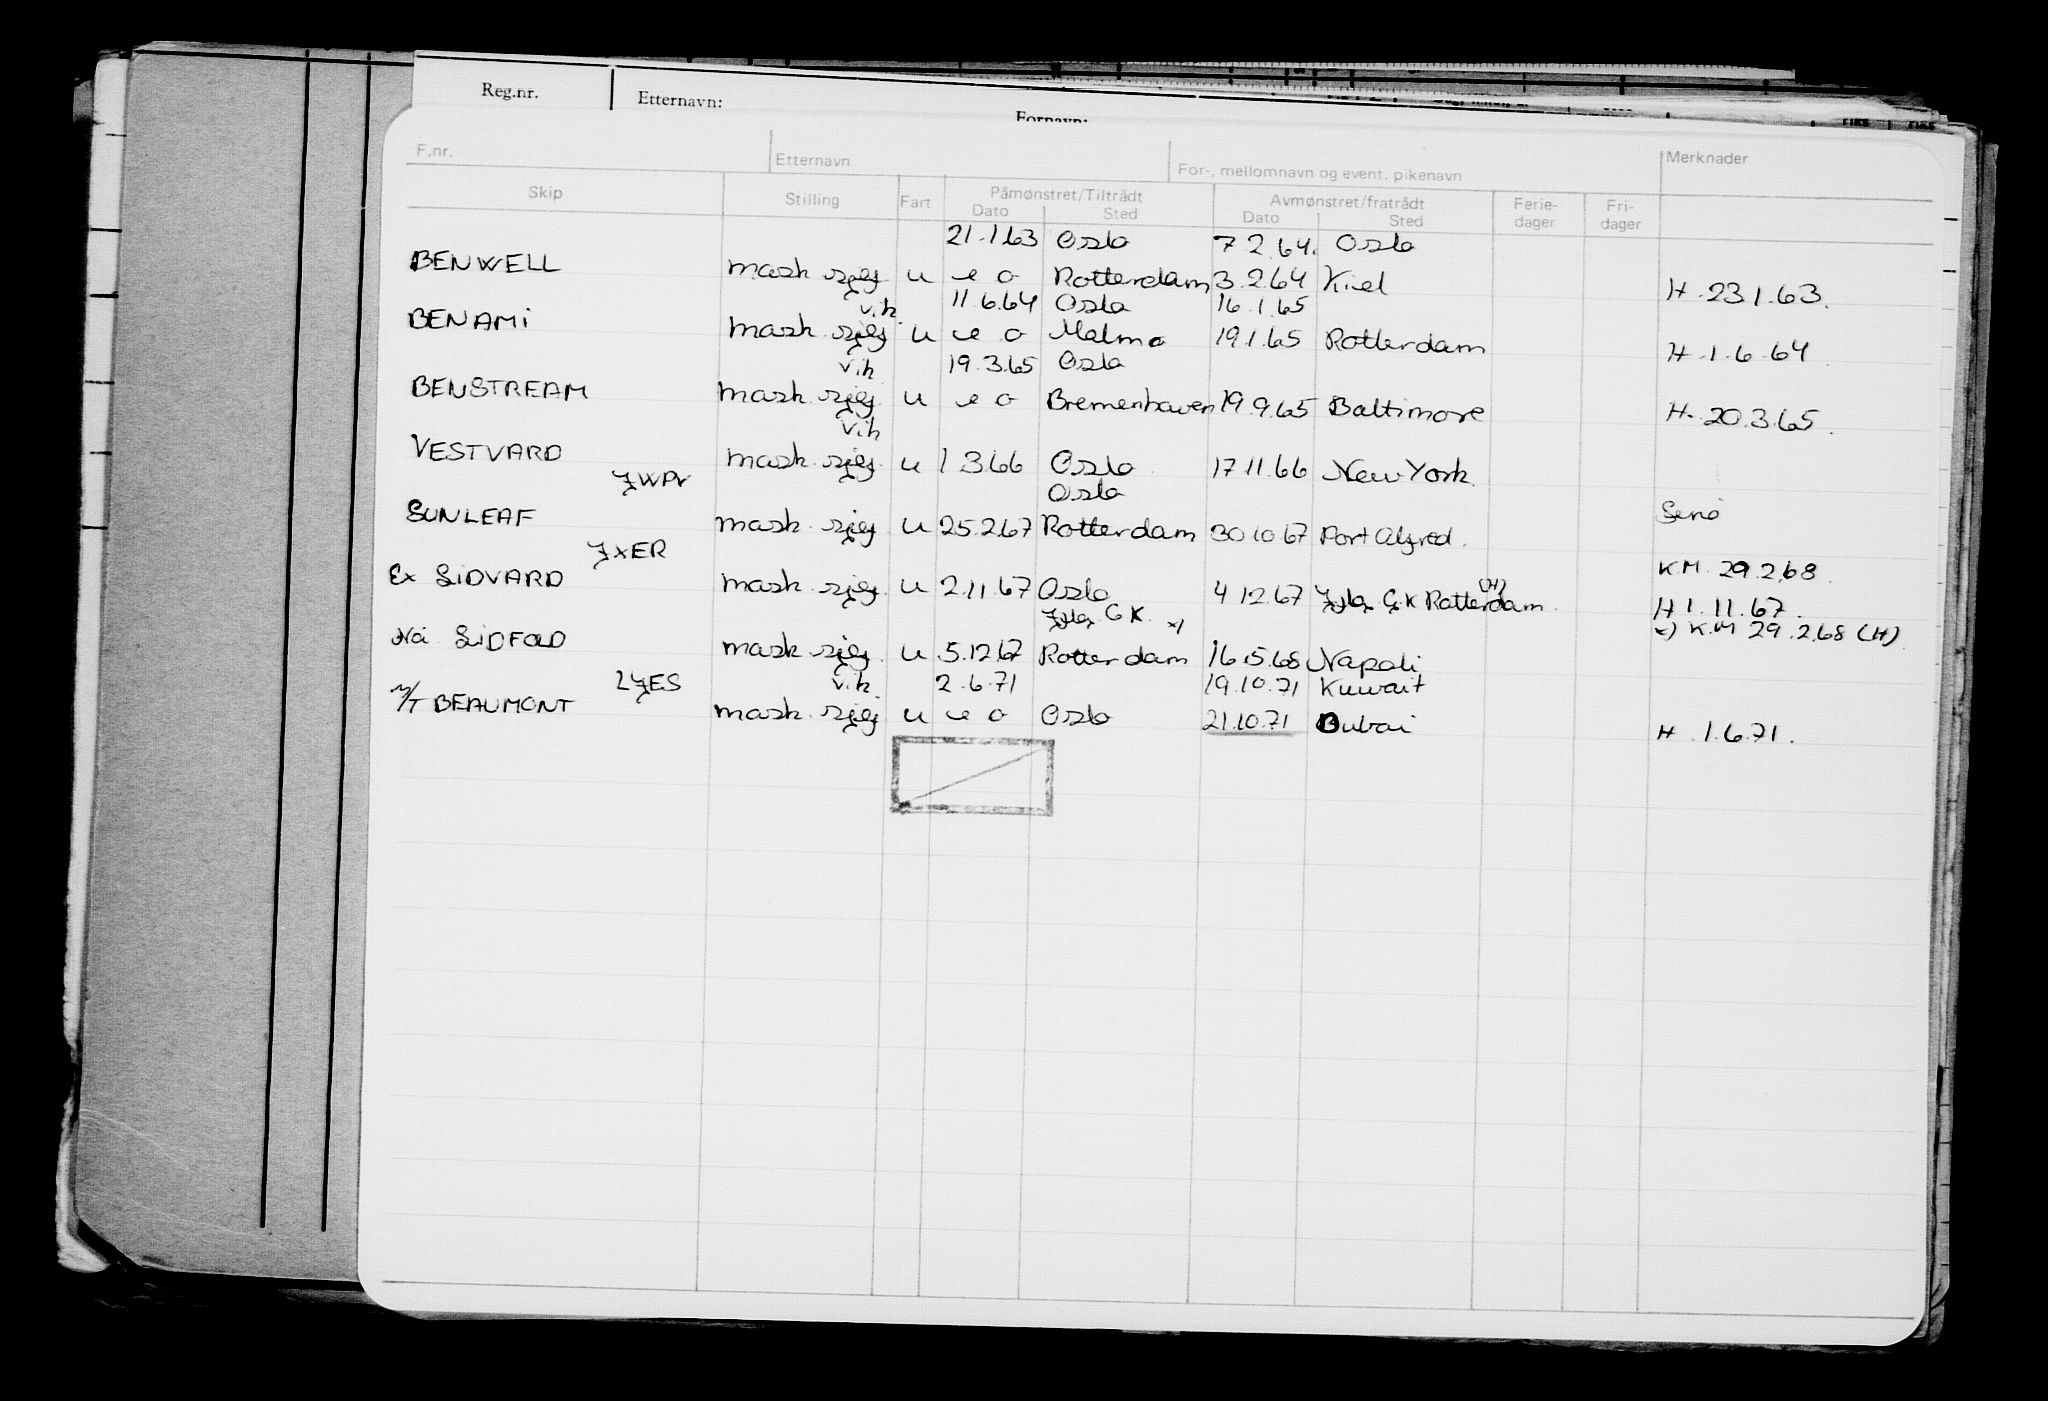 Reg.nr. Etternavn: Fornavn:
F.nr. Etternavn For-, mellomnavn og event. pikenavn Merknader
Skip Stilling Fart Påmønstret/Tiltrådt Avmønstret/fratrådt Ferie- Fri-
Dato Sted Dato Sted dager dager
21.1.63 Oslo 7.2.64. Oslo
BENWELL mask sjef u e o Rotterdam 3.2.64 Kiel H. 23.1.63.
v.h. 11.6.64 Oslo 16.1.65
BENAMI mask. sjef u e o Malmø 19.1.65 Rotterdam H. 1.6.64
v.h 19.3.65 Oslo
BENSTREAM mask. sjef u e o Bremenhaven 19.9.65 Baltimore H. 20.3.65.
v.h
VESTVARD mask. sjef u 1.3.66 Oslo 17.11.66 New York.
JWPV Oslo
SUNLEAF mask. sjef u 25.2.67 Rotterdam 30.10.67 Port Alfred.
JXER KM. 29.2.68.
Ex SIDVARD mask. sjef. u 2.11.67 Oslo 4.12.67 G.K Rotterdam (H) H 1.11.67.
G K. x) x) K.M 29.2.68 (H)
Nå SIDFOLD mask. sjef. u 5.12.67 Rotterdam 16.5.68 Napoli
LJES v.h. 2.6.71 19.10.71 Kuwait
M/T BEAUMONT mask. sjef u e o Oslo 21.10.71 Dubai H. 1.6.71.